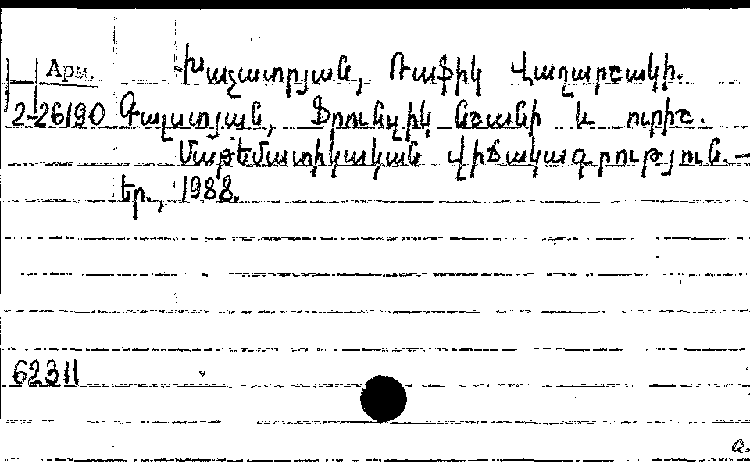 Арм.
Խաչատրյան, Ռաֆիկ Վաղարշակի.
2-26190 Գալստյան, Ֆրունզիկ Նշանի և ուրիշ.
Մաթեմատիկական վիճակագրություն. —
Եր., 1988.
62311